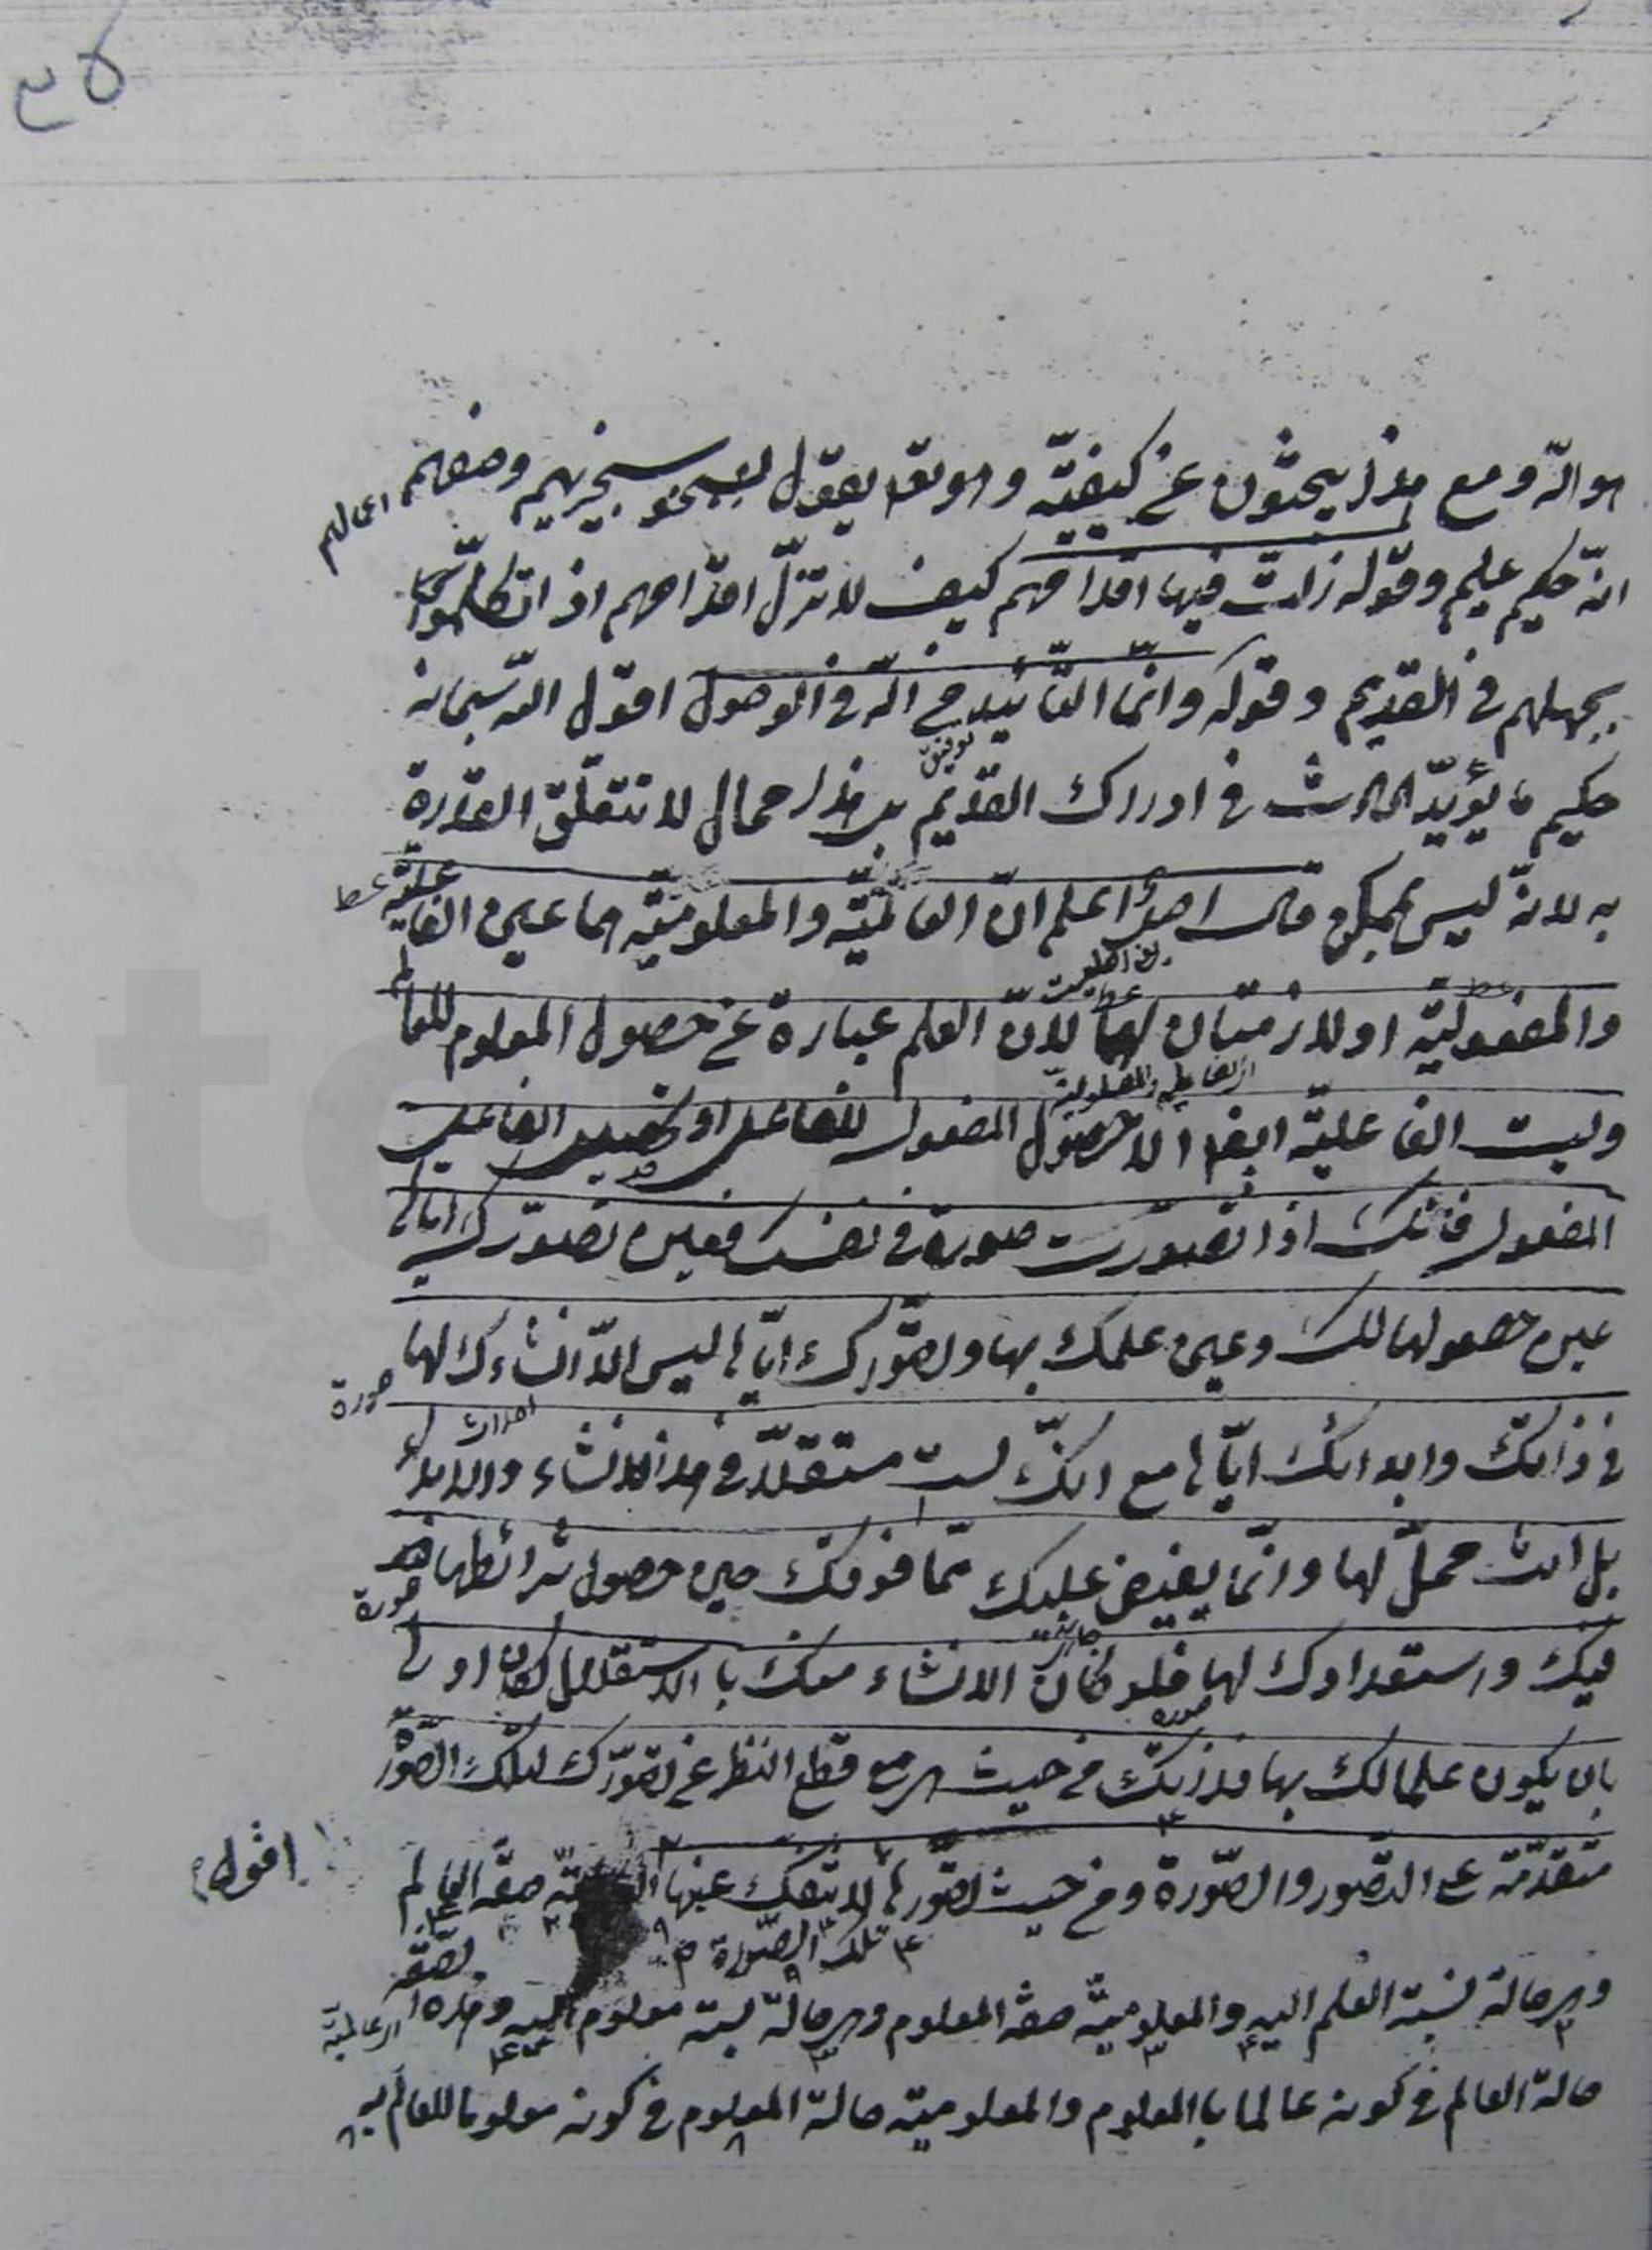 ٤٥
هو الله ومع هذا يبحثون عن كيفيّته وهو تعه يقول سيجزيهم وصفهم
اى الهم
انّه حكيم عليم وقوله زلت فيها اقدامهم كيف لا تزلّ اقدامهم اذا تكلّموا
بجهلهم في القديم وقوله وانّما التّأييد من الله في الوصول اقول الله سبحانه
توفيق
حكيم ما يؤيّد الحادث في ادراك القديم بل هذا محال لا تتعلّق القدرة
به لانّه ليس بممكن قال اعلم انّ العالميّة والمعلوميّة هما عين الفاعليّة
والمفعوليّة او لازمتان لهما لانّ العلم عبارة عن حصول المعلوم للعالم
اى الفاعلية والمفعولية
وليست الفاعليّة ايضا الا حصول المفعول للفاعل او
المفعول فانّك اذا تصورت صورة في نفسك فعين تصوّرك ايّاها
عين حصولها لك وعين علمك بها وتصوّرك ايّاها ليس الّا انشاءك لها
صورة
احداث
في ذاتك وابدائك ايّاها مع انّك لست مستقلّا في هذا الانشاء والابداء
بل انت محلّ لها وانّما يفيض عليك ممّا فوقك حين حصول شرائطها
صورة
فيك واستعدادك لها فلو كان الانشاء منك بالاستقلال لكان اولى
صورة
بان يكون علما لك بها فذاتك من حيث هي مع قطع النظر عن تصوّرك لتلك الصّورة
متقدّمة على التصور والصّورة ومن حيث تصوّرها لا تنفك عنها
اقول
صفة العالم
تلك الصّورة
وهي حالة نسبة العلم اليه والمعلوميّة صفة المعلوم وهي حالة نسبة معلوم اليه وهذه
اى عالميّة
حالة العالم في كونه عالما با المعلوم والمعلوميّة حالة المعلوم في كونه معلوما للعالم به